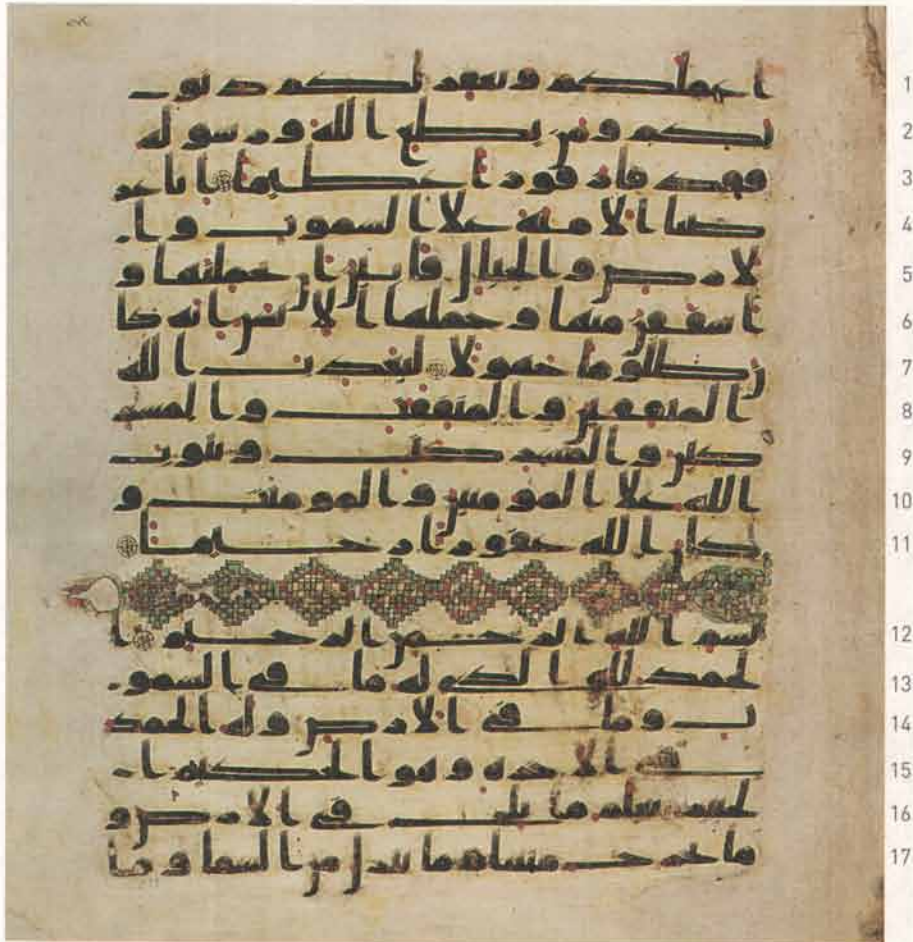 1 اعملكم ويغفر لكم ذنو
2 بكم ومن يطع الله ورسوله
3 فقد فاز فوزا عظيما انا عر
4 ضنا الامنة علا السموت وا
5 لارض والجبال فابين ان يحملنها و
6 اشفقن منها وحملها الانسن انه كا
7 ن ظلوما جهولا ليعذب الله
8 المنفقين والمنفقت والمشر
9 كين والمشركت ويتوب
10 الله علا المومنين والمومنت و
11 كان الله غفورا رحيما
12 بسم الله الرحمن الرحيم ا
13 لحمد لله الذي له ما في السمو
14 ت وما في الارض وله الحمد
15 في الاخرة وهو الحكيم ا
16 لخبير يعلم ما يلج في الارض و
17 ما يخرج منها وما ينزل من السما وما